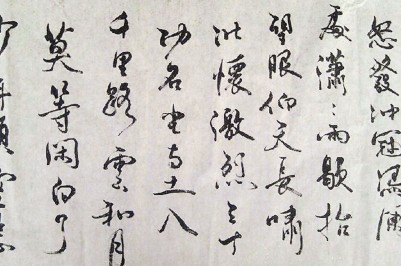 怒發冲冠憑闌
處瀟瀟雨歇抬
望眼仰天長嘯
壯懷激烈三十
功名尘与土八
千里路雲和月
莫等閑白了
少年頭空悲